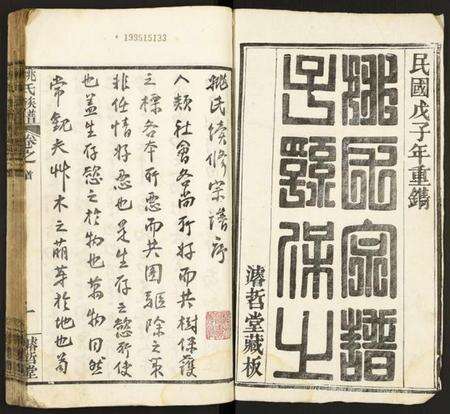 民國戊子年重鐫
姚氏宗譜
子孫保之
濬哲堂藏板
193515133
姚氏續修宗譜序
人類社會各尚所好而共樹保護
之標各本所惡而共圖驅除之策
非任情好惡也是生存之慾所使
也蓋生存慾之於物也萬物同然
常觀夫艸木之萌芽於地也苟
姚氏族譜 卷之首 一 濬哲堂